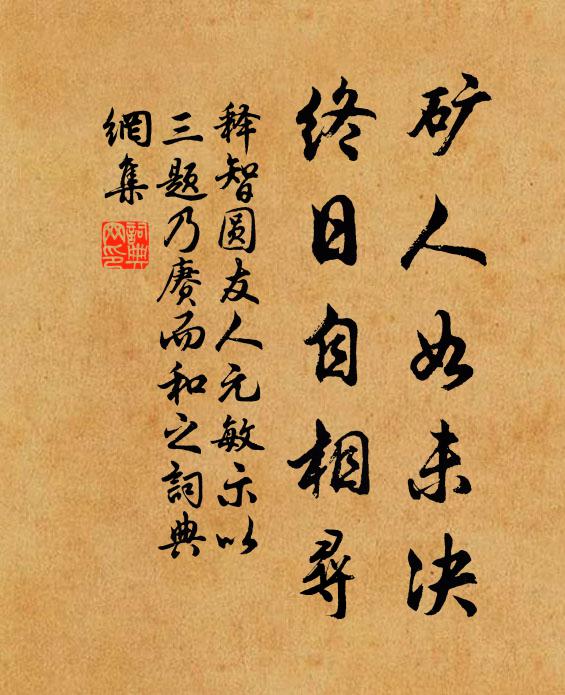 矿人如未决
终日自相尋
释智圆友人元敏示以
三题乃赓而和之詞典
網集
詞典
网印